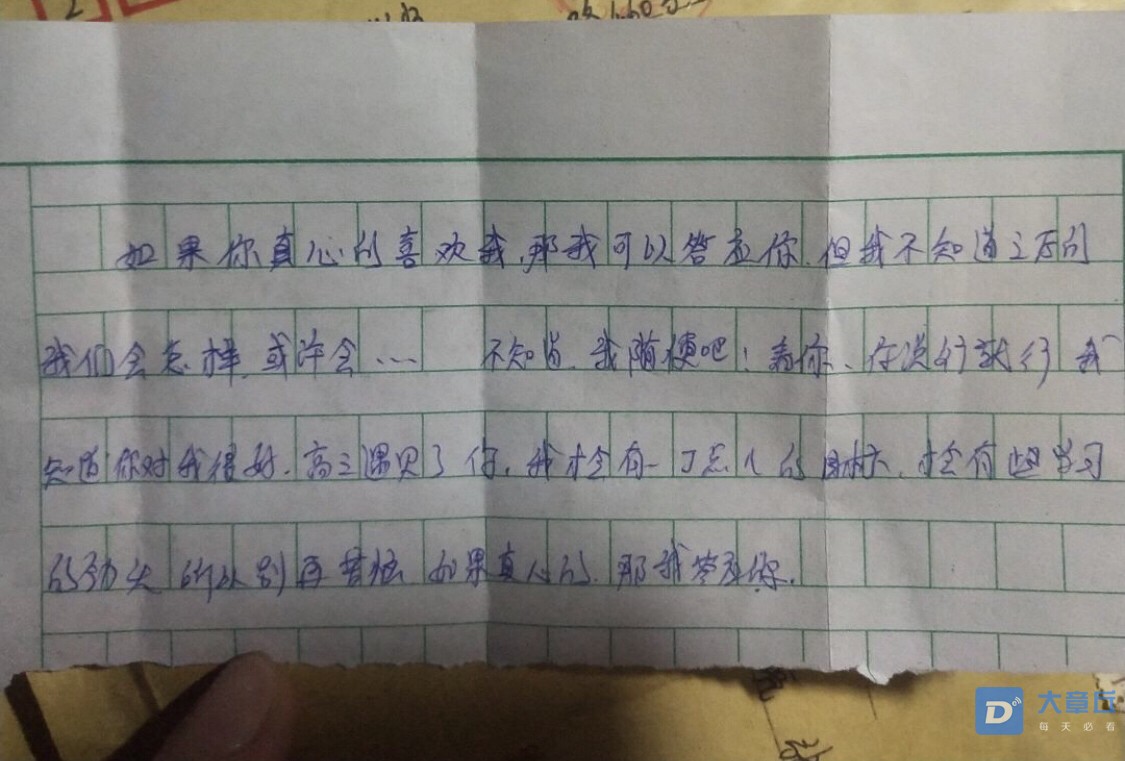 如果你真心的喜欢我,那我可以答应你.但我不知道之后的
我们会怎样,或许会…… 不知道,我随便吧!看你、你说行就行 我
知道你对我很好.高三遇见了你,我才会有一丁点儿的目标、才会有这学习
的劲头 所以别再苦恼 如果真心的.那我答应你.
大章丘
每天必看